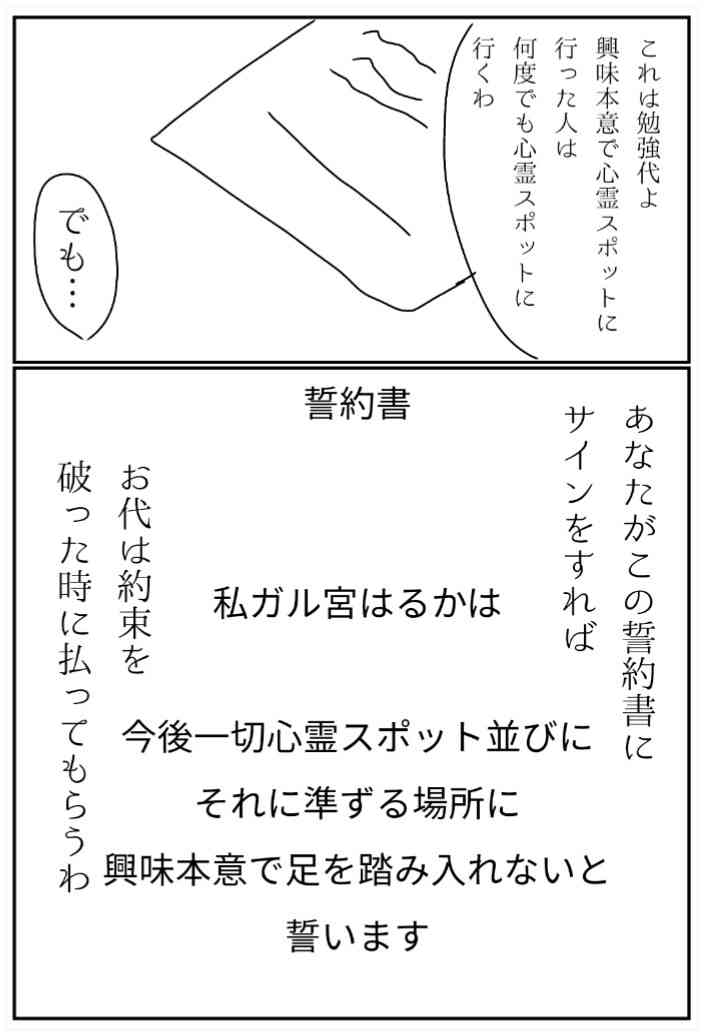 これは勉強代よ
興味本意で心霊スポットに
行った人は
何度でも心霊スポットに
行くわ
でも…
あなたがこの誓約書に
サインをすれば
誓約書
私ガル宮はるかは
今後一切心霊スポット並びに
それに準ずる場所に
興味本意で足を踏み入れないと
誓います
お代は約束を
破った時に払ってもらうわ